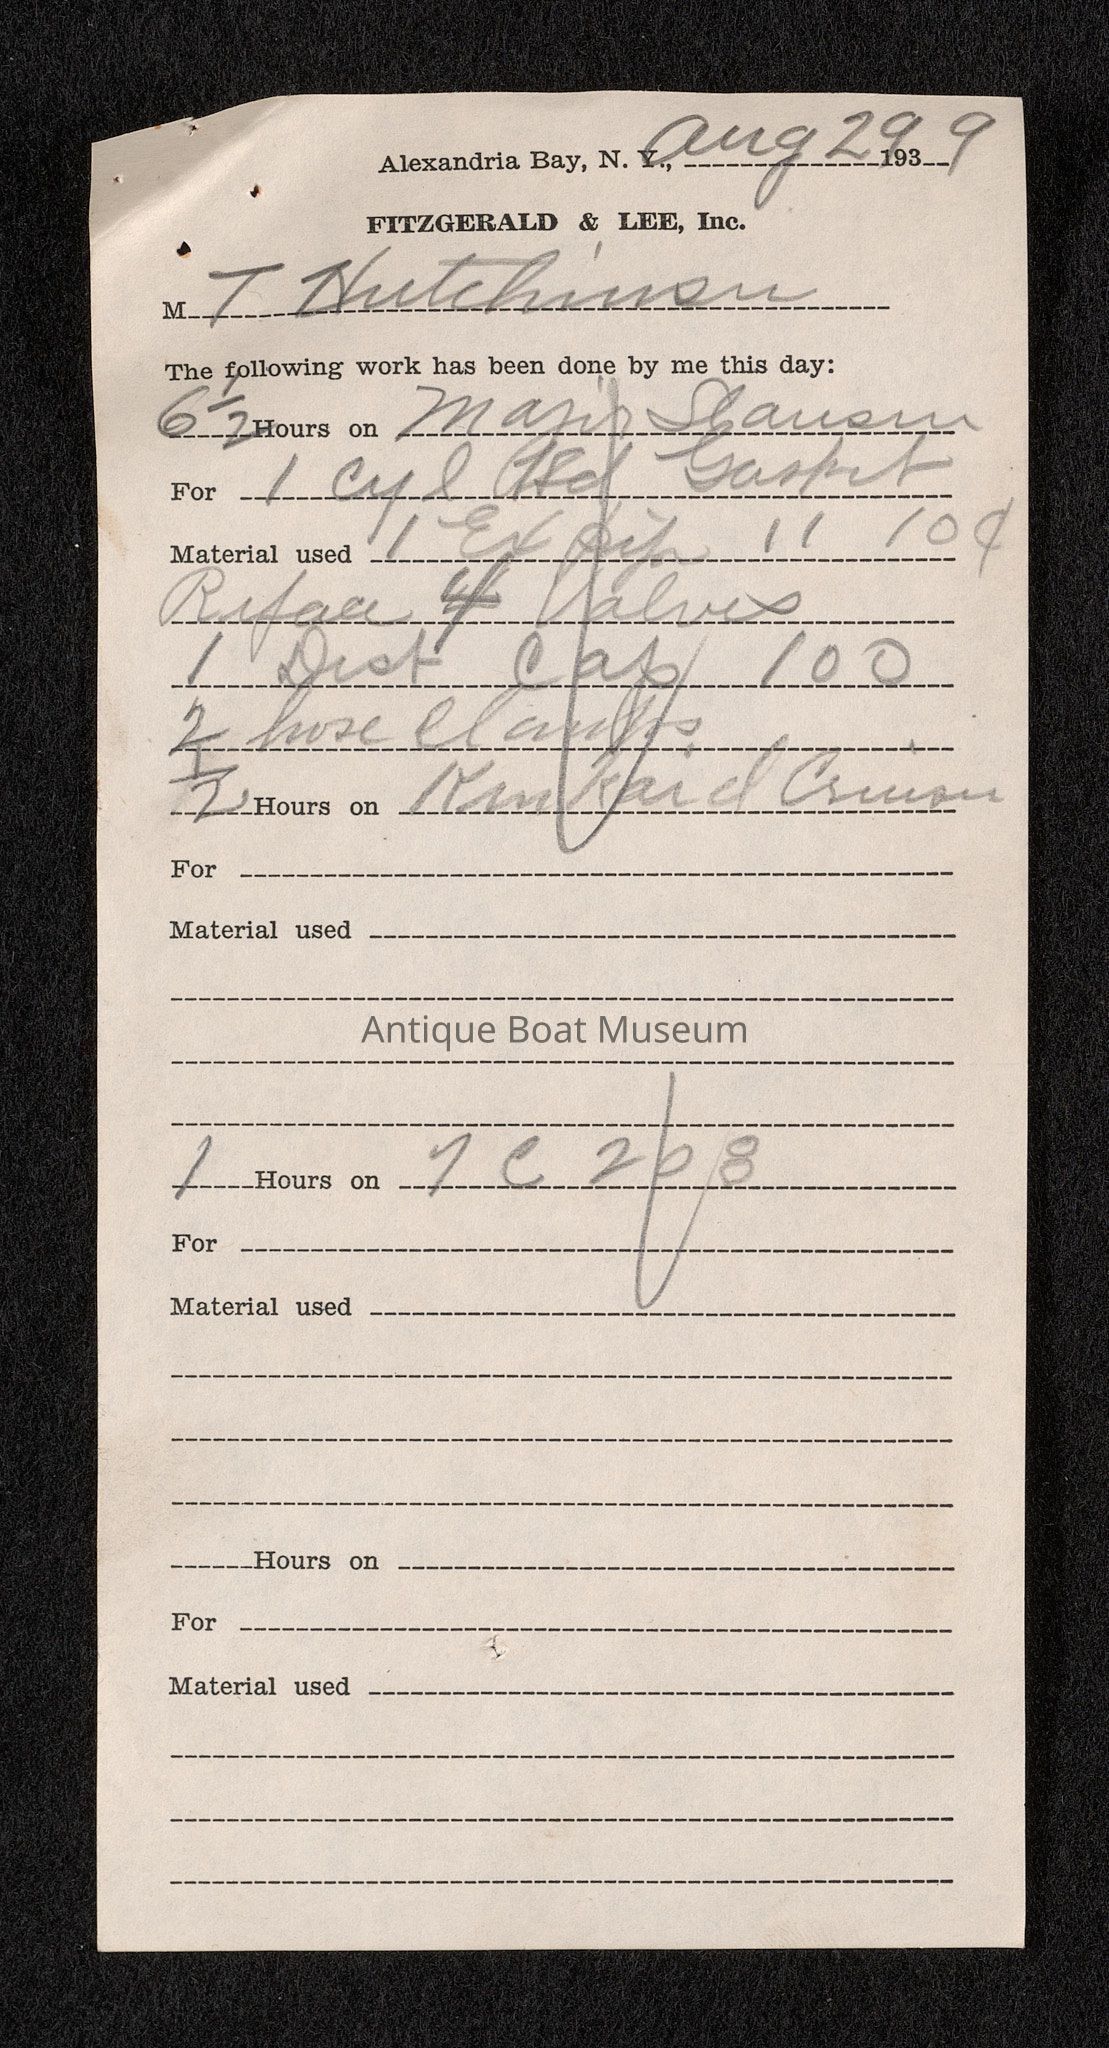 Alexandria Bay, N. Y., Aug 29 1939
FITZGERALD & LEE, Inc.
M T Hutchinson
The following work has been done by me this day:
6 1/2 Hours on Major Slauson
For 1 Cyl Hd Gasket
Material used 1 Ex pipe 11 10¢
Reface 4 Valves
1 Dist Cap 100
2 hose Clamps
1/2 Hours on Kinkaid
For
Material used
Antique Boat Museum
1 Hours on 7 C 208
For
Material used
Hours on
For
Material used